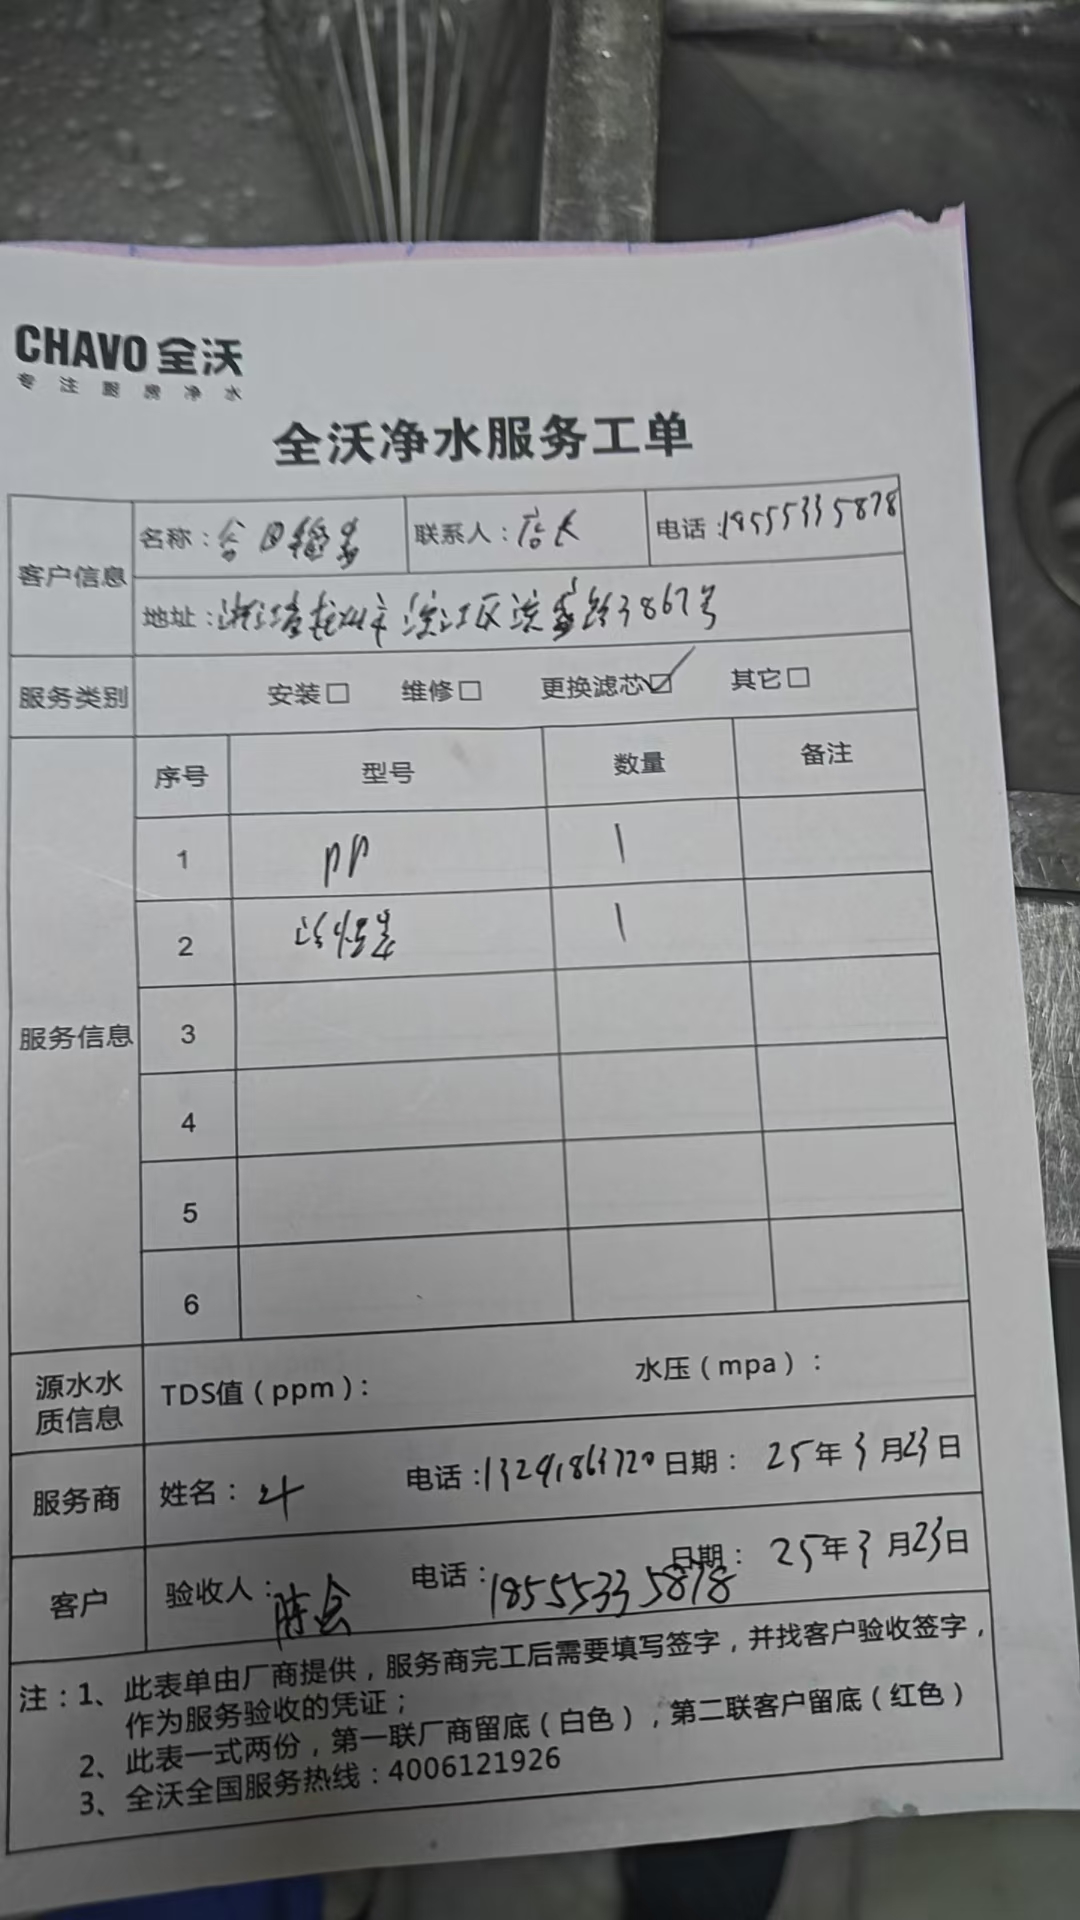 CHAVO 全沃
专注厨房净水
全沃净水服务工单
客户信息
名称：
联系人：店长
电话：18555335878
地址：浙江省杭州市滨江区滨盛路3867号
服务类别 安装☐ 维修☐ 更换滤芯☑ 其它☐
服务信息
序号 型号 数量 备注
1 PP 1
2 活性炭 1
3
4
5
6
源水水质信息
TDS值（ppm）： 水压（mpa）：
服务商 姓名： 电话：13291863720 日期：25年3月23日
客户 验收人： 电话：18555335878 日期：25年3月23日
注：1、此表单由厂商提供，服务商完工后需要填写签字，并找客户验收签字，
作为服务验收的凭证；
2、此表一式两份，第一联厂商留底（白色），第二联客户留底（红色）
3、全沃全国服务热线：4006121926